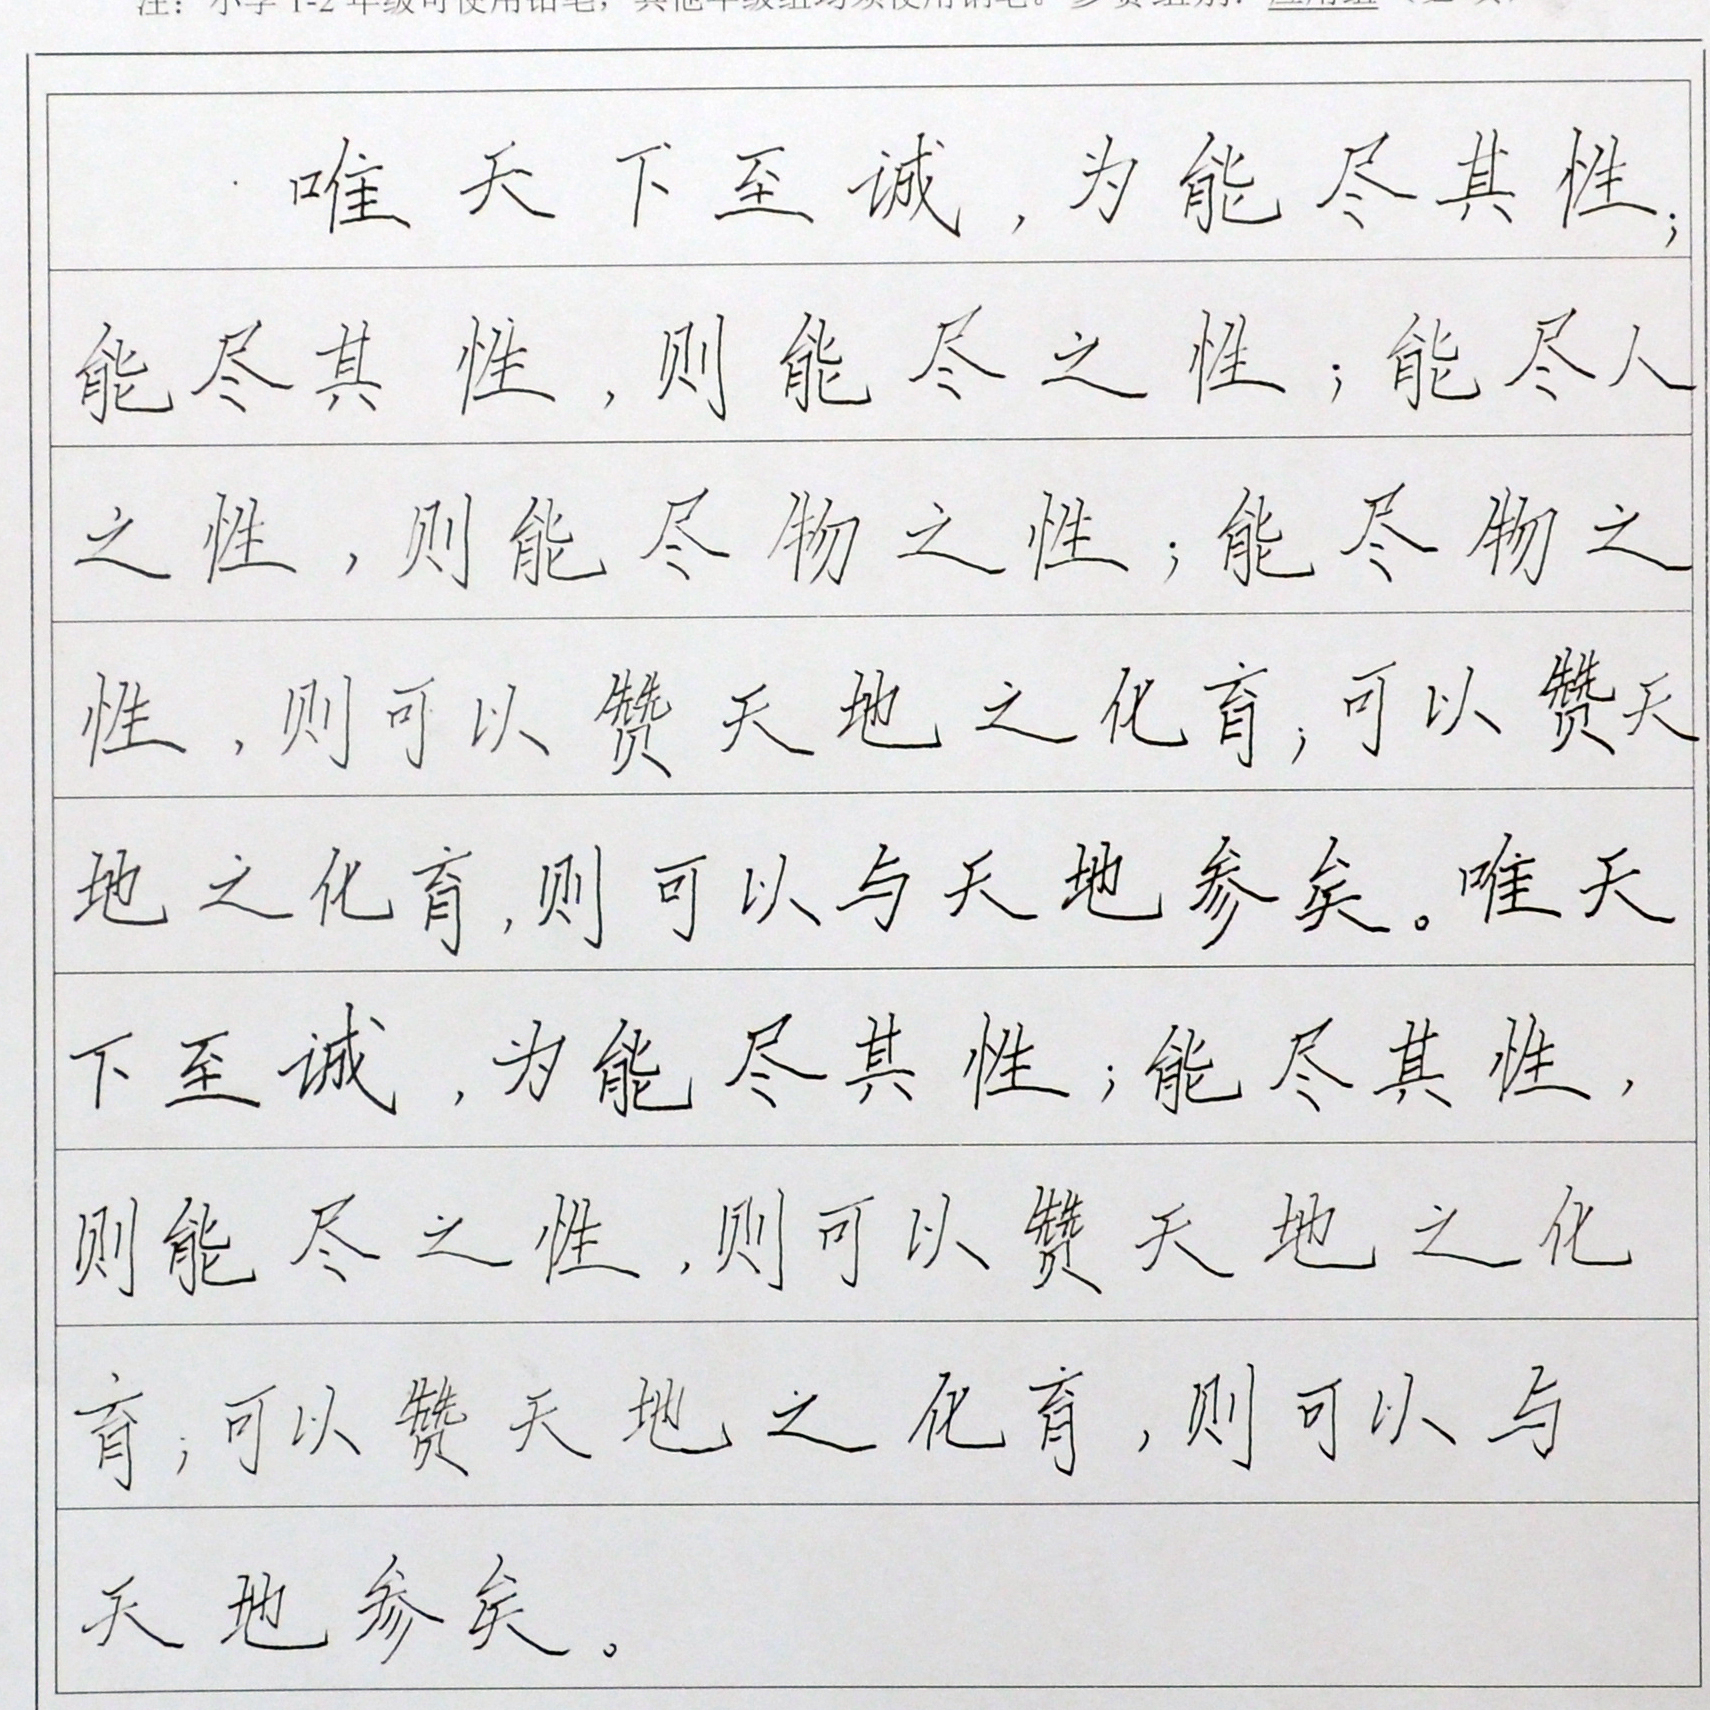 注：小学 1-2 年级可使用铅笔，其他年级组均须使用钢笔。参赛组别：
唯天下至诚，为能尽其性；
能尽其性，则能尽之性；能尽人
之性，则能尽物之性；能尽物之
性，则可以赞天地之化育；可以赞天
地之化育，则可以与天地参矣。唯天
下至诚，为能尽其性；能尽其性，
则能尽之性，则可以赞天地之化
育；可以赞天地之化育，则可以与
天地参矣。